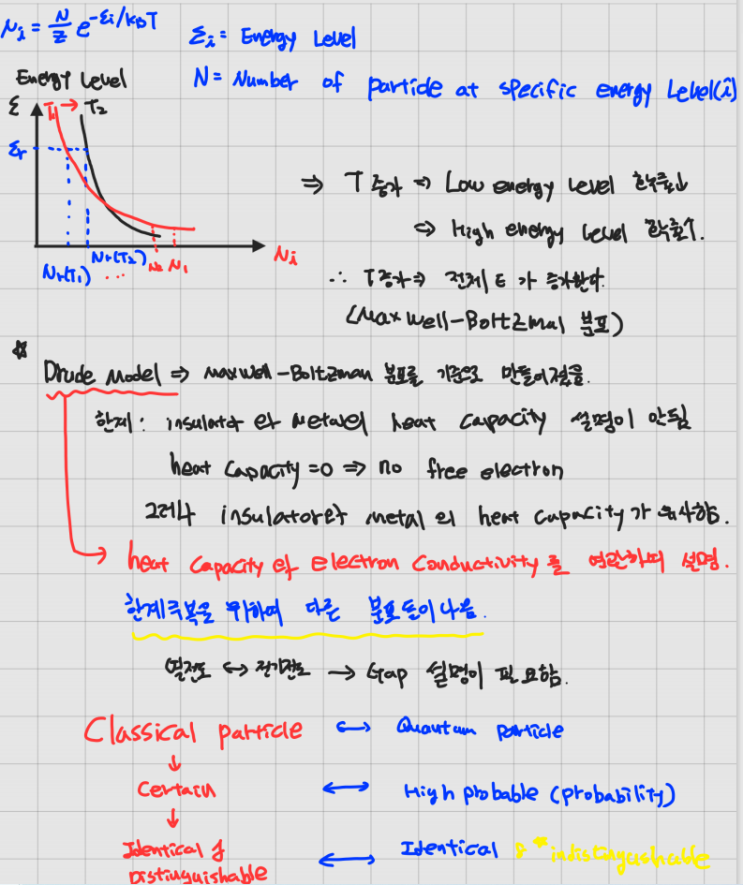 Ni = N/Z e^-εi/kBT
εi = Energy Level
N = Number of particle at specific energy Level(i)
Energy Level
ε T1 → T2
εr
Nr(T1) Nr(T2) ... N2 N1 Ni
⇒ T 증가 ⇒ Low energy level 확률↓
⇨ High energy level 확률↑.
∴ T증가 ⇒ 전체 E 가 증가한다.
(Maxwell-Boltzmal 분포)
Drude Model ⇒ Maxwell-Boltzman 분포를 기준으로 만들어졌음.
한계: insulator 와 metal의 heat capacity 설명이 안됨
heat capacity = 0 ⇒ no free electron
그러나 insulator와 metal 의 heat capacity 가 유사함.
→ heat capacity 와 electron conductivity 를 연관하여 설명.
한계극복을 위하여 다른 분포들이 나옴.
열전도 ↔ 전기전도 → Gap 설명이 필요함.
Classical particle ↔ Quantum Particle
↓
Certain ↔ High probable (probability)
↓
Identical & Distinguishable ↔ Identical & *indistinguishable